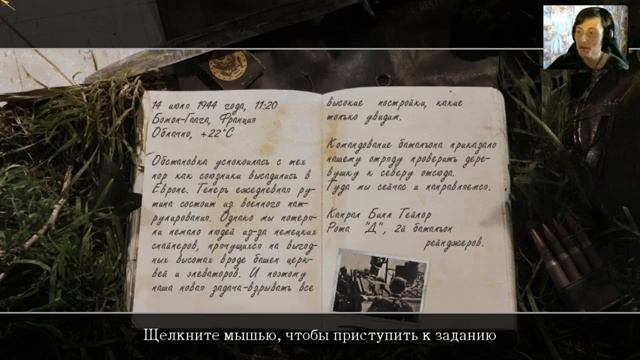 14 июля 1944 года, 11:20
Бомон-Гаага, Франция
Облачно, +22°C
Обстановка успокоилась с тех
пор как союзники высадились в
Европе. Теперь ежедневная ру-
тина состоит из военного пат-
рулирования. Однако мы потеря-
ли немало людей из-за немецких
снайперов, прячущихся на выгод-
ных высотах вроде башен церк-
вей и элеваторов. И поэтому
наша новая задача-взрывать все
высокие постройки, какие
только увидим.
Командование батальона приказало
нашему отряду проверить дере-
вушку к северу отсюда.
Туда мы сейчас и направляемся.
Капрал Билл Тейлор
Рота "Д", 2й батальон
рейнджеров.
Щелкните мышью, чтобы приступить к заданию